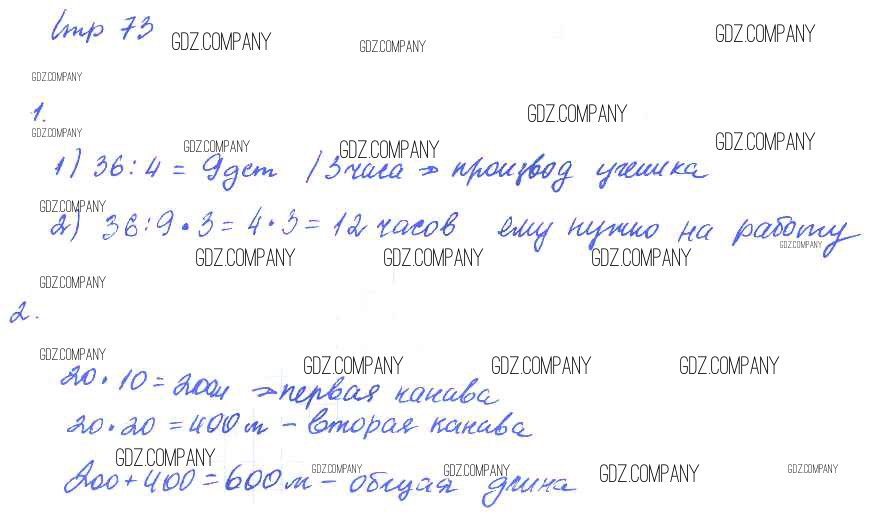 Стр 73
GDZ.COMPANY GDZ.COMPANY GDZ.COMPANY
GDZ.COMPANY
1. GDZ.COMPANY
GDZ.COMPANY GDZ.COMPANY GDZ.COMPANY GDZ.COMPANY
1) 36:4 = 9 дет / 3 часа → производ ученика
GDZ.COMPANY
2) 36:9•3 = 4•3 = 12 часов ему нужно на работу
GDZ.COMPANY GDZ.COMPANY GDZ.COMPANY GDZ.COMPANY
GDZ.COMPANY
2.
GDZ.COMPANY GDZ.COMPANY GDZ.COMPANY GDZ.COMPANY
20•10 = 200м → первая канава
20•20 = 400м – вторая канава
GDZ.COMPANY GDZ.COMPANY GDZ.COMPANY GDZ.COMPANY GDZ.COMPANY
200+400 = 600м – общая длина